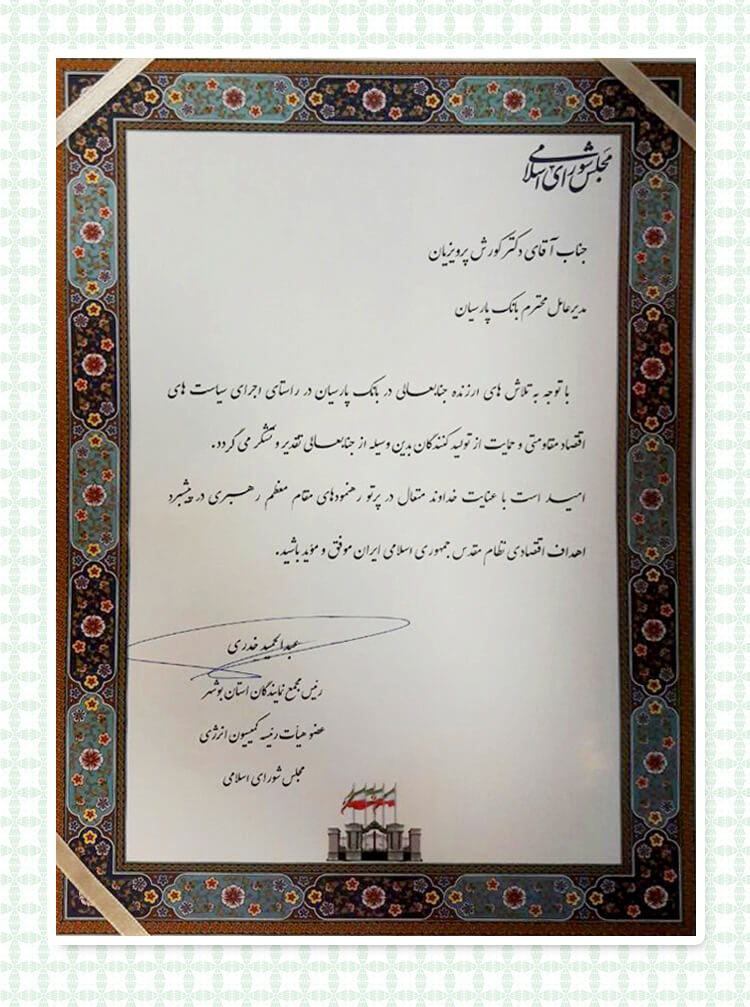 مجلس شورای اسلامی
جناب آقای دکتر کورش پرویزیان
مدیرعامل محترم بانک پارسیان
با توجه به تلاش های ارزنده جنابعالی در بانک پارسیان در راستای اجرای سیاست های
اقتصاد مقاومتی و حمایت از تولید کنندگان بدین وسیله از جنابعالی تقدیر و تشکر می گردد.
امید است با عنایت خداوند متعال در پرتو رهنمودهای مقام معظم رهبری در پیشبرد
اهداف اقتصادی نظام مقدس جمهوری اسلامی ایران موفق و مؤید باشید.
عبدالحمید خدری
رئیس مجمع نمایندگان استان بوشهر
عضو هیأت رئیسه کمیسیون انرژی
مجلس شورای اسلامی